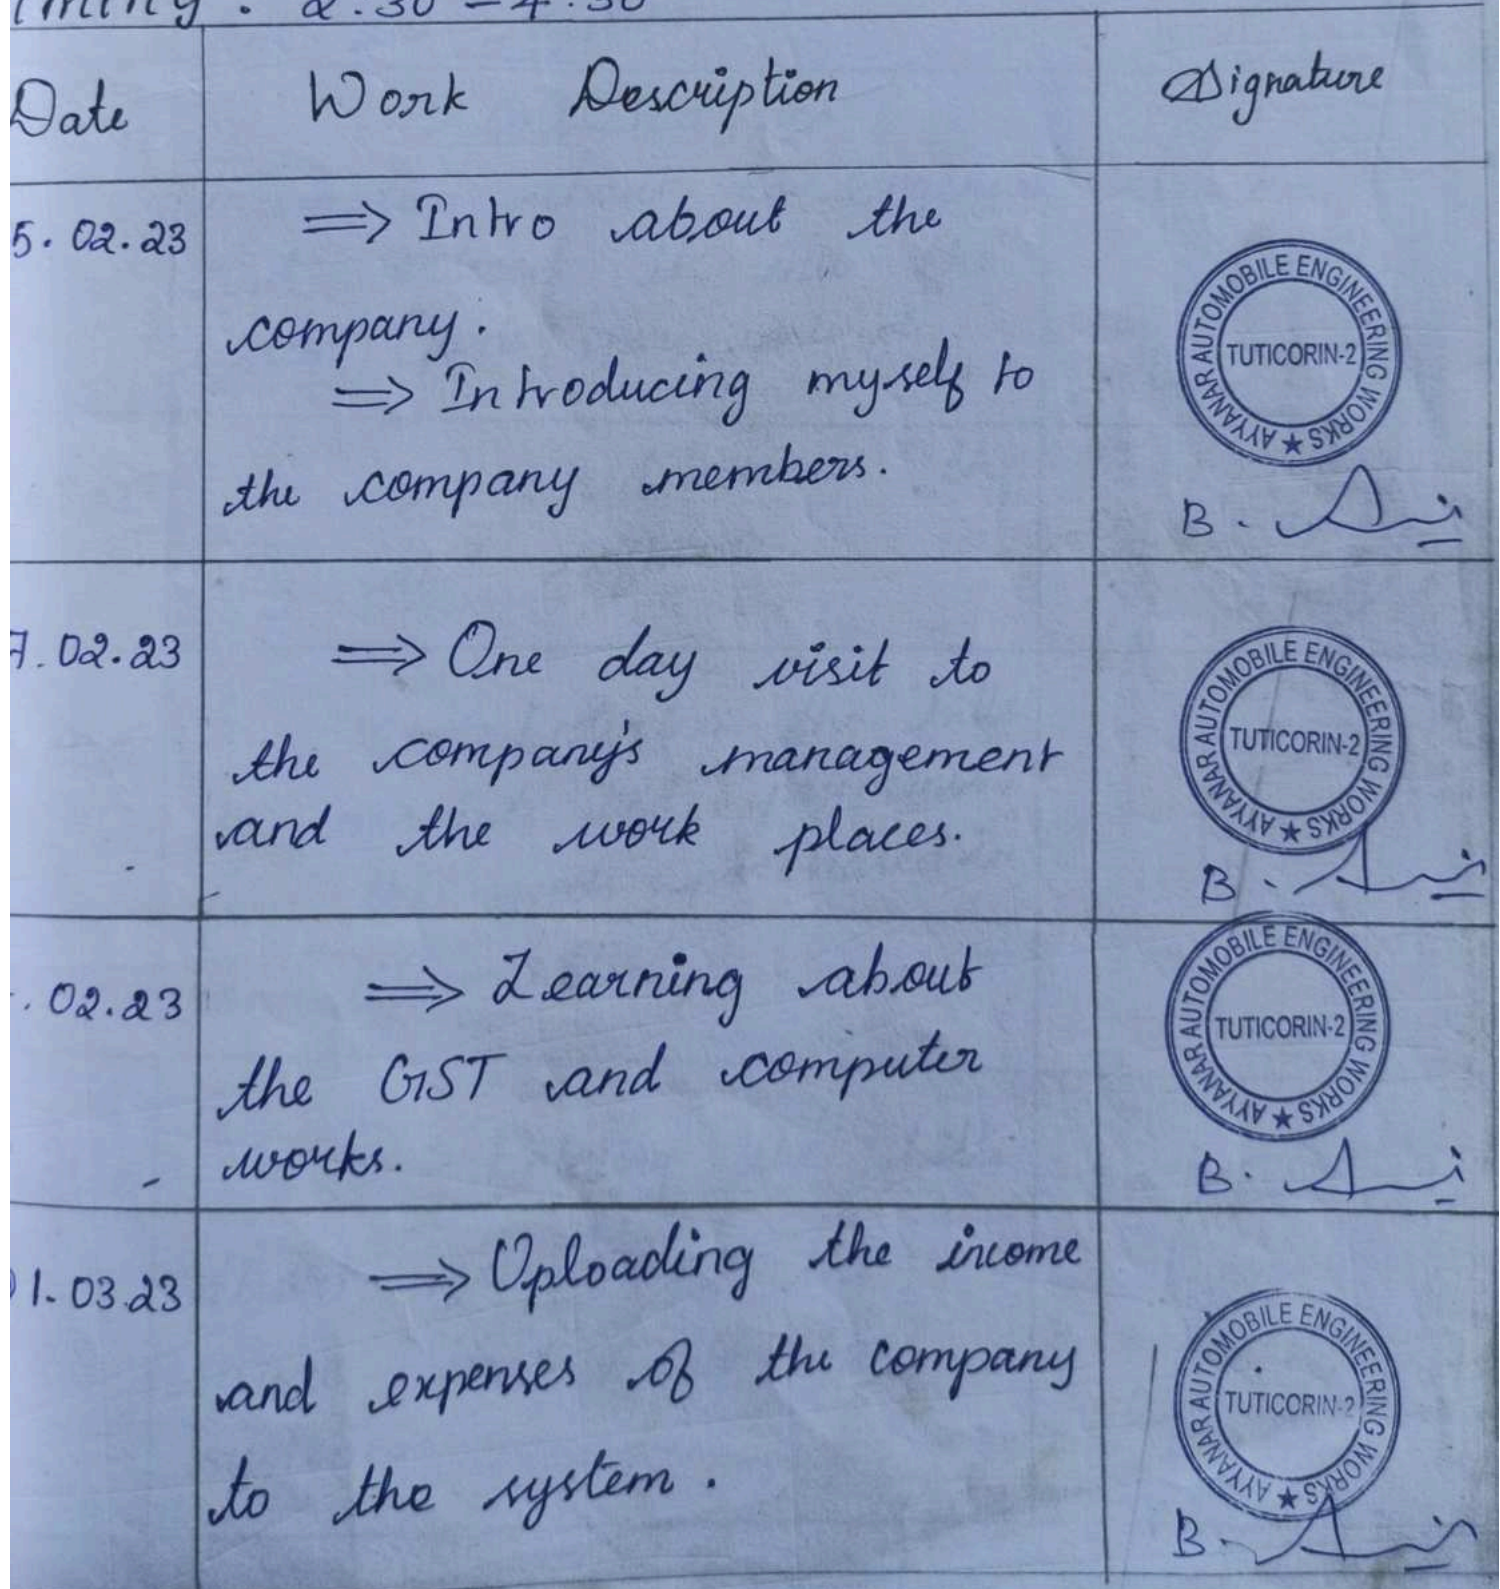 Timing : 2.30 - 4.30
Date
Work Description
Signature
5.02.23
⇒ Intro about the
company.
⇒ Introducing myself to
the company members.
AYYANAR AUTOMOBILE ENGINEERING WORKS ★
TUTICORIN-2
B.
7.02.23
⇒ One day visit to
the company's management
and the work places.
AYYANAR AUTOMOBILE ENGINEERING WORKS ★
TUTICORIN-2
B.
. 02.23
⇒ Learning about
the GST and computer
works.
AYYANAR AUTOMOBILE ENGINEERING WORKS ★
TUTICORIN-2
B.
01.03.23
⇒ Uploading the income
and expenses of the company
to the system.
AYYANAR AUTOMOBILE ENGINEERING WORKS ★
TUTICORIN-2
B.